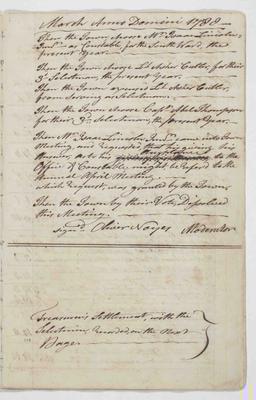 March Anno Domini 1788 —
Then the Town Choose Mr. Isaac Lincoln
Junr. — as Constable, for the South Ward, the
present year. —
Then the Town Choose Lt. Asher Cutler, for their
3d. Selectman, the present year. —
Then the Town excused Lt. Asher Cutler,
from Serving as Selectman. —
Then the Town Choose Capt. Abl. Thompson
for their 3d. Selectman, the present year. —
Then Mr. Isaac Lincoln Junr. came into Town
Meeting, and requested that his giving his
Answer, as to his acceptance to the
Office of Constable, might be referd to the
Annual April Meeting,
which request, was granted by the Town,
Then the Town by their Vote, Dissolved
this Meeting. —
sign'd Oliver Noyes Moderator
Treasurer's Settlement, with the
Selectmen, Recorded, on the Next
Page.